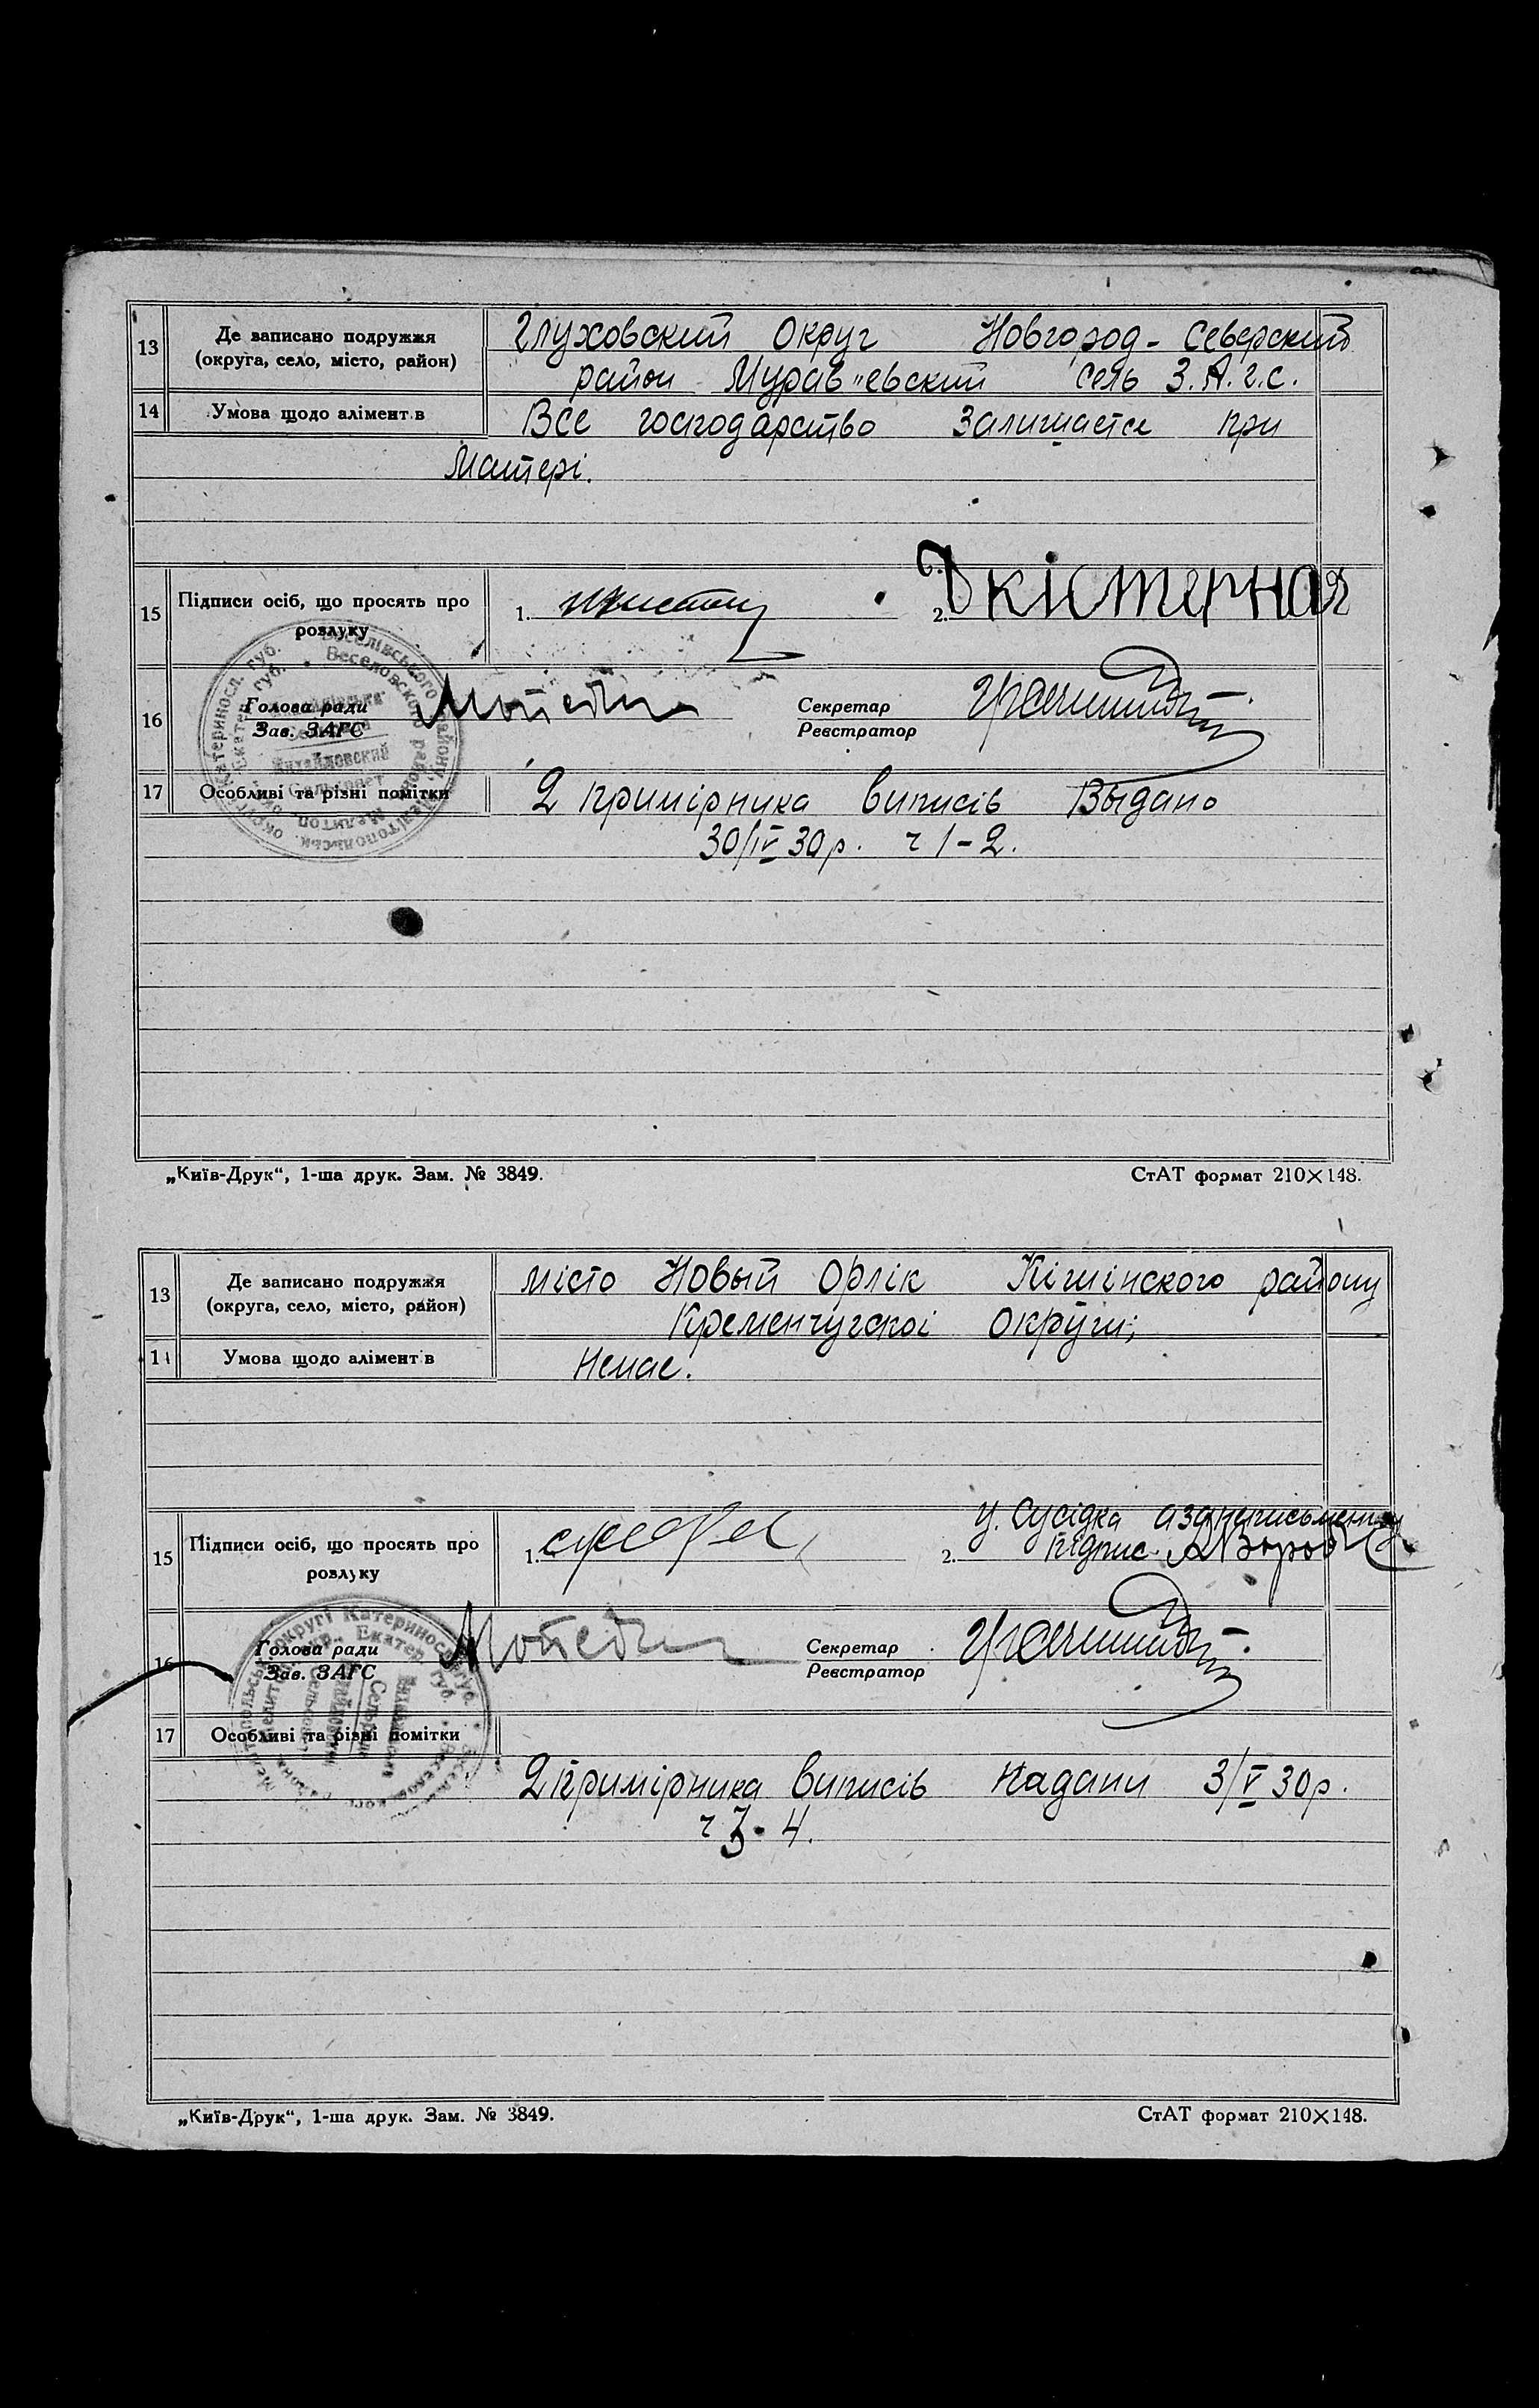 13 Де записано подружжя (округа, село, місто, район) Глуховский Округ Новгород-Северский
район Мурав"евский сель З.А.Г.С.
14 Умова щодо алімент.в Все господарство Залишается при
Матері.
15 Підписи осіб, що просять про розлуку 1. 2. Дкістерная
16 Голова ради
Зав. ЗАГС
Секретар
Реєстратор
17 Особливі та різні помітки 2 примірника виписів Выдано
30/IV 30р. ч 1-2.
„Київ-Друк“, 1-ша друк. Зам. № 3849. СтАТ формат 210×148.
13 Де записано подружжя (округа, село, місто, район) місто Новый Орлік Кішінского району
Кременчугскоі округи;
14 Умова щодо алімент в Немае.
15 Підписи осіб, що просять про розлуку 1. 2. У. Сусідка
підпис.
16 Голова ради
Зав. ЗАГС
Секретар
Реєстратор
17 Особливі та різні помітки
2 примірника виписів Надани 3/V 30р.
ч 3-4.
„Київ-Друк“, 1-ша друк. Зам. № 3849. СтАТ формат 210×148.